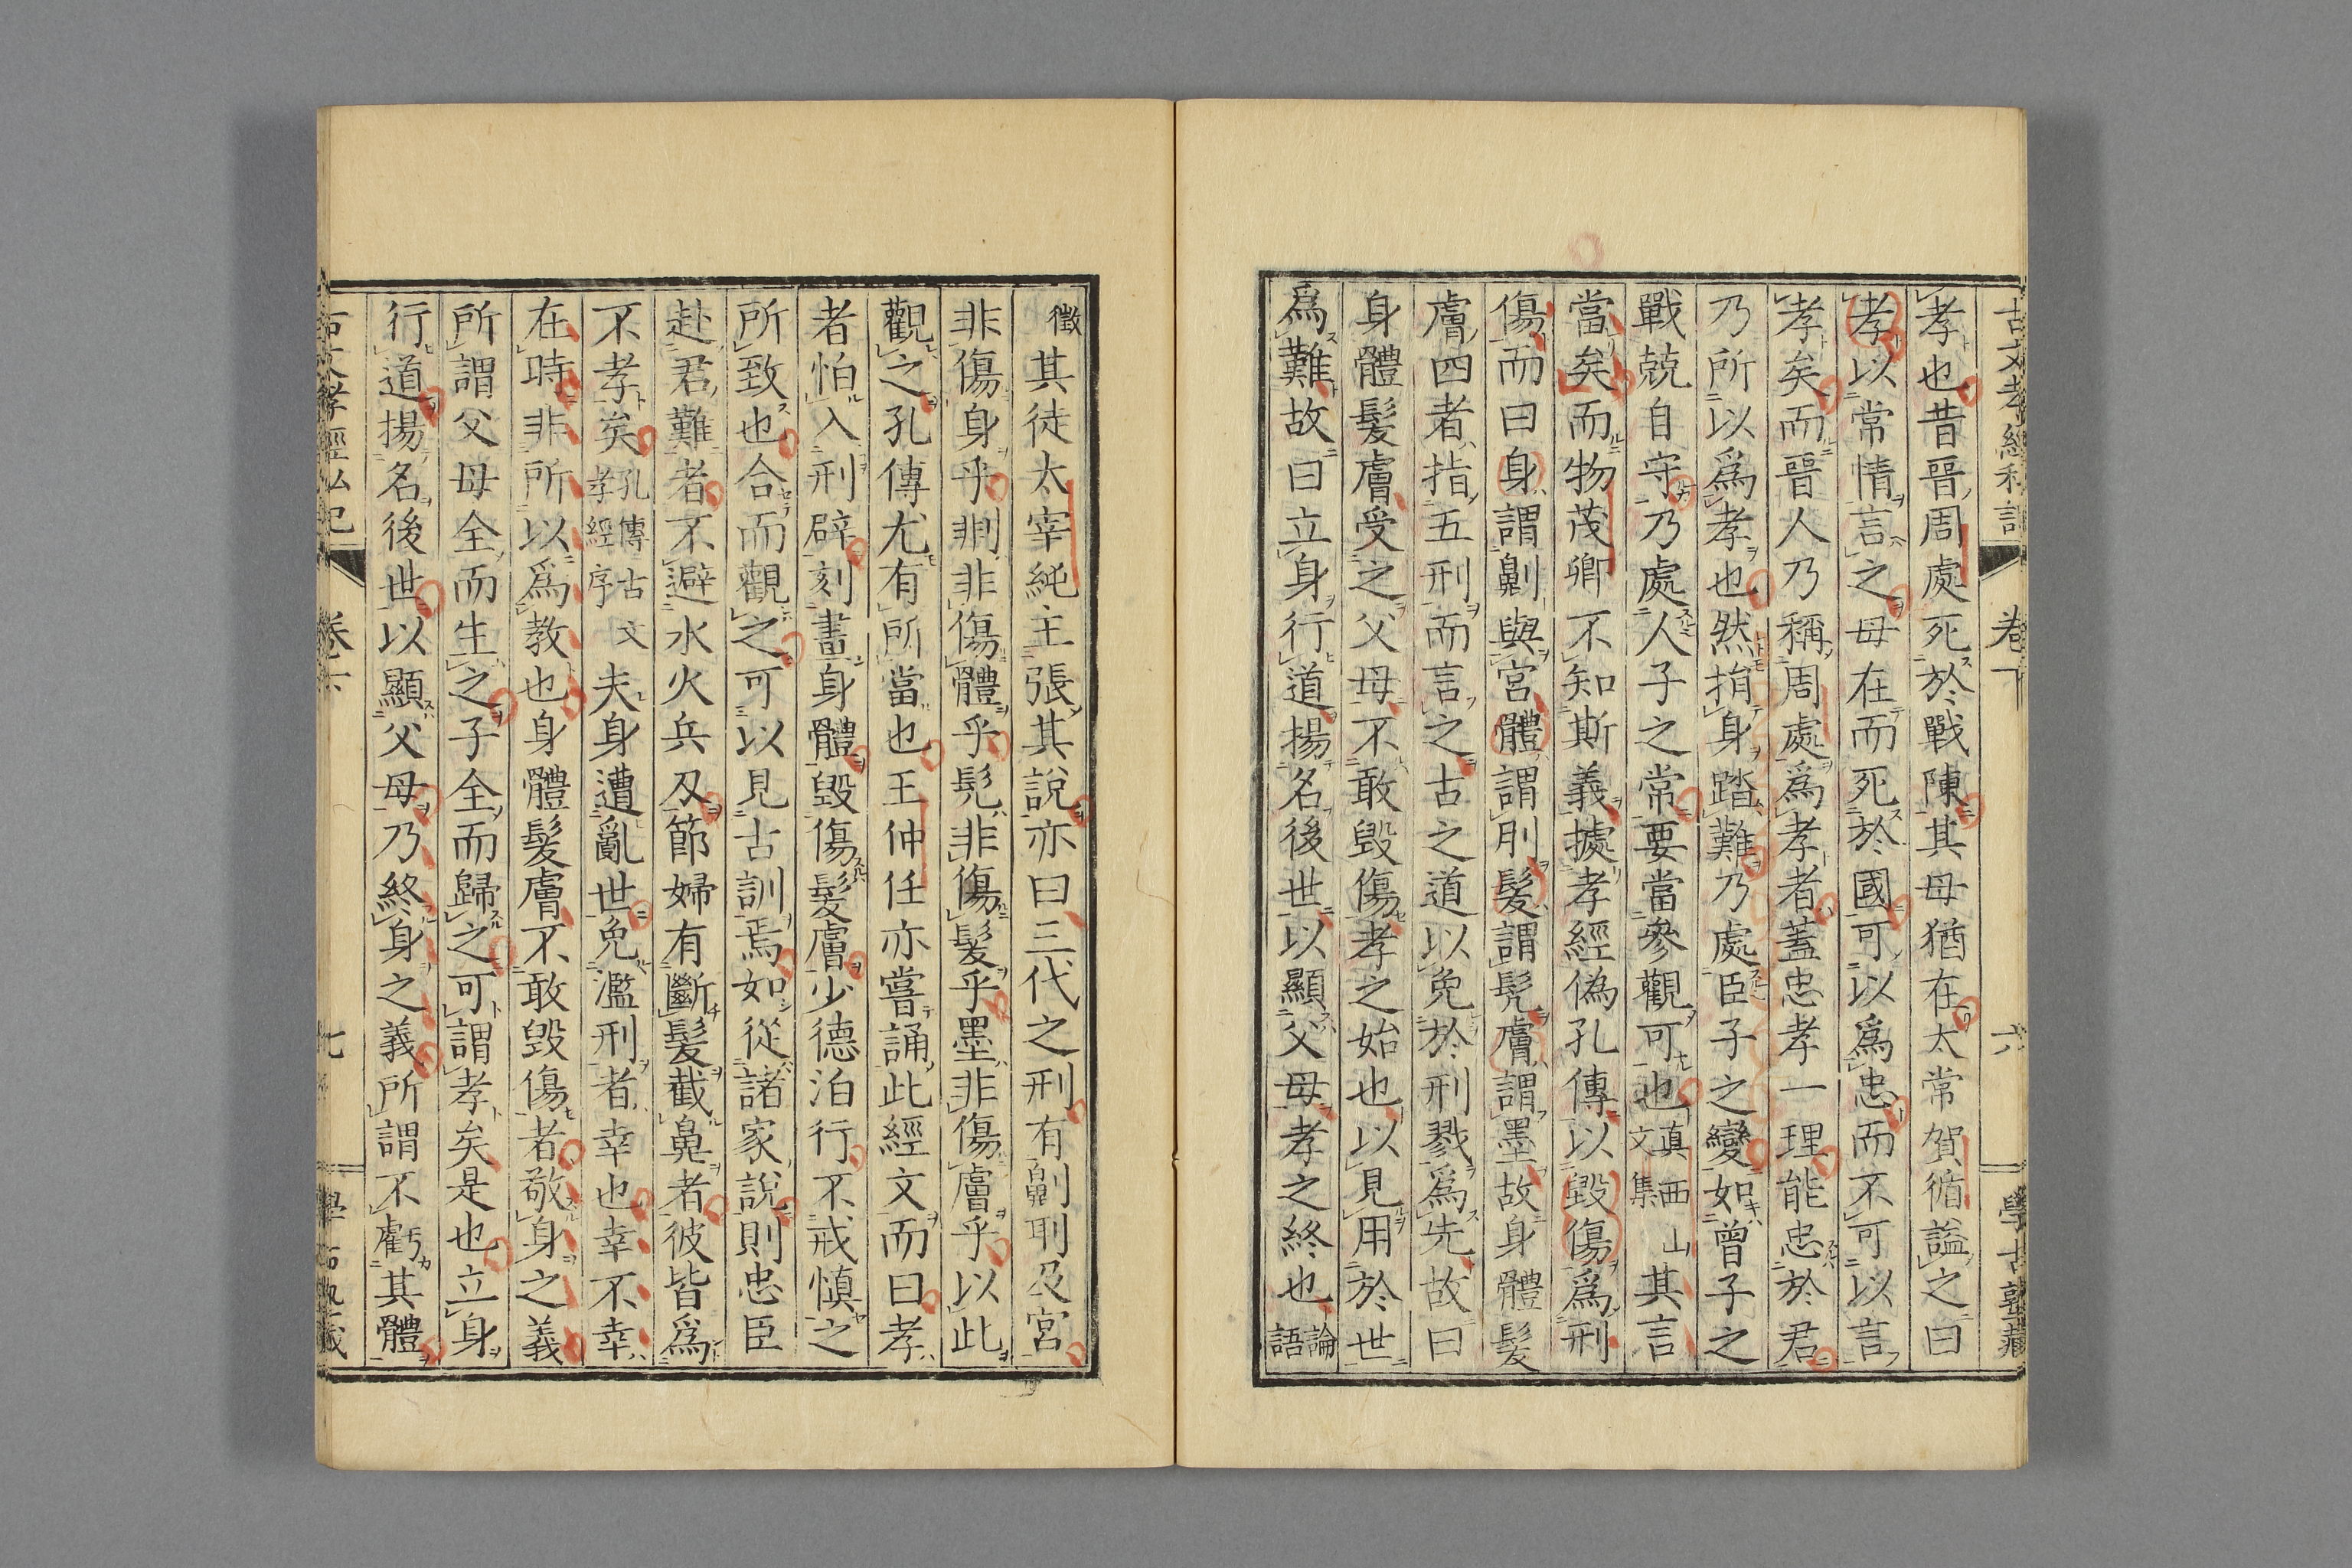 孝也昔晉周處死於戰陳其母猶在太常賀循謚之曰
孝以常情言之母在而死於國可以爲忠而不可以言
孝矣而晉人乃稱周處爲孝者蓋忠孝一理能忠於君
乃所以爲孝也然捐身踏難乃處臣子之變如曾子之
戰兢自守乃處人子之常要當參觀可也眞西山文集其言
當矣而物茂卿不知斯義據孝經偽孔傳以毀傷爲刑
傷而曰身謂劓與宮體謂刖髮謂髡膚謂墨故身體髮
膚四者指五刑而言之古之道以免於刑戮爲先故曰
身體髮膚受之父母不敢毀傷孝之始也以見用於世
爲難故曰立身行道揚名後世以顯父母孝之終也論語
徵其徒太宰純主張其說亦曰三代之刑有劓刵及宮
非傷身乎剕非傷體乎髡非傷髮乎墨非傷膚乎以此
觀之孔傳尤有所當也王仲任亦嘗誦此經文而曰孝
者怕入刑辟刻畫身體毀傷髮膚少德泊行不戒愼之
所致也合而觀之可以見古訓焉如從諸家說則忠臣
赴君難者不避水火兵刃節婦有斷髮截鼻者彼皆爲
不孝矣孔傳古文孝經序夫身遭亂世免濫刑者幸也幸不幸
在時非所以爲教也身體髮膚不敢毀傷者敬身之義
所謂父母全而生之子全而歸之可謂孝矣是也立身
行道揚名後世以顯父母乃終身之義所謂不虧其體